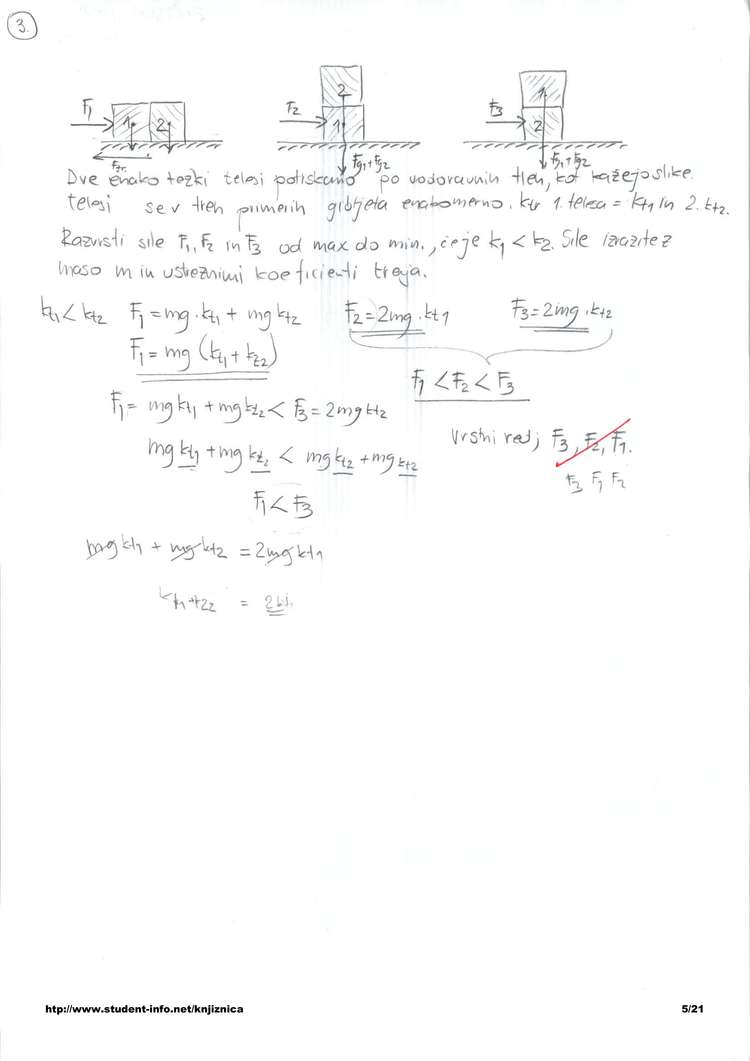 3.
F1 1 2 Ftr
F2 2 1 Fg1+Fg2
F3 1 2 Fg1+Fg2
Dve enako težki telesi potiskamo po vodoravnih tleh, kot kažejo slike.
telesi se v treh primerih gibljeta enakomerno. ktr 1. telesa = kt1 in 2. kt2.
Razvrsti sile F1, F2 in F3 od max do min., če je k1 < k2. Sile izrazite z
maso m in ustreznimi koeficienti trenja.
kt1 < kt2 F1 = mg · kt1 + mg kt2 F2 = 2mg · kt1 F3 = 2mg · kt2
F1 = mg (kt1 + kt2)
F1 < F2 < F3
F1 = mg kt1 + mg kt2 < F3 = 2mg kt2
Vrstni red; F3, F2, F1.
mg kt1 + mg kt2 < mg kt2 + mg kt2
F3 F1 F2
F1 < F3
mg kt1 + mg kt2 = 2mg kt1
http://www.student-info.net/knjiznica 5/21